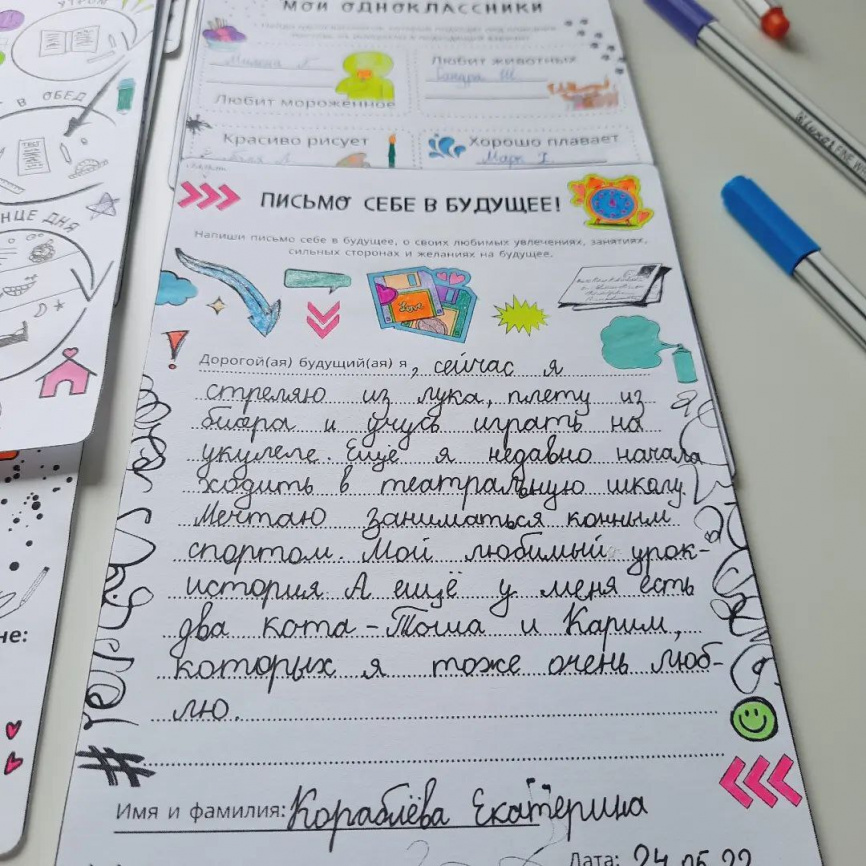 УТРОМ
В ОБЕД
НЦЕ ДНЯ
не:
МОИ ОДНОКЛАССНИКИ
Любит животных
Любит мороженное
Красиво рисует
Хорошо плавает
Марк
ПИСЬМО СЕБЕ В БУДУЩЕЕ!
Напиши письмо себе в будущее, о своих любимых увлечениях, занятиях,
сильных сторонах и желаниях на будущее.
Love
Дорогой(ая) будущий(ая) я, сейчас я
стреляю из лука, плету из
бисера и учусь играть на
укулеле. Ещё я недавно начала
ходить в театральную школу.
Мечтаю заниматься конным
спортом. Мой любимый урок-
история. А ещё у меня есть
два кота - Тоша и Карим,
которых я тоже очень люб-
лю.
#
Имя и фамилия: Кораблёва Екатерина
Дата: 24.05.22